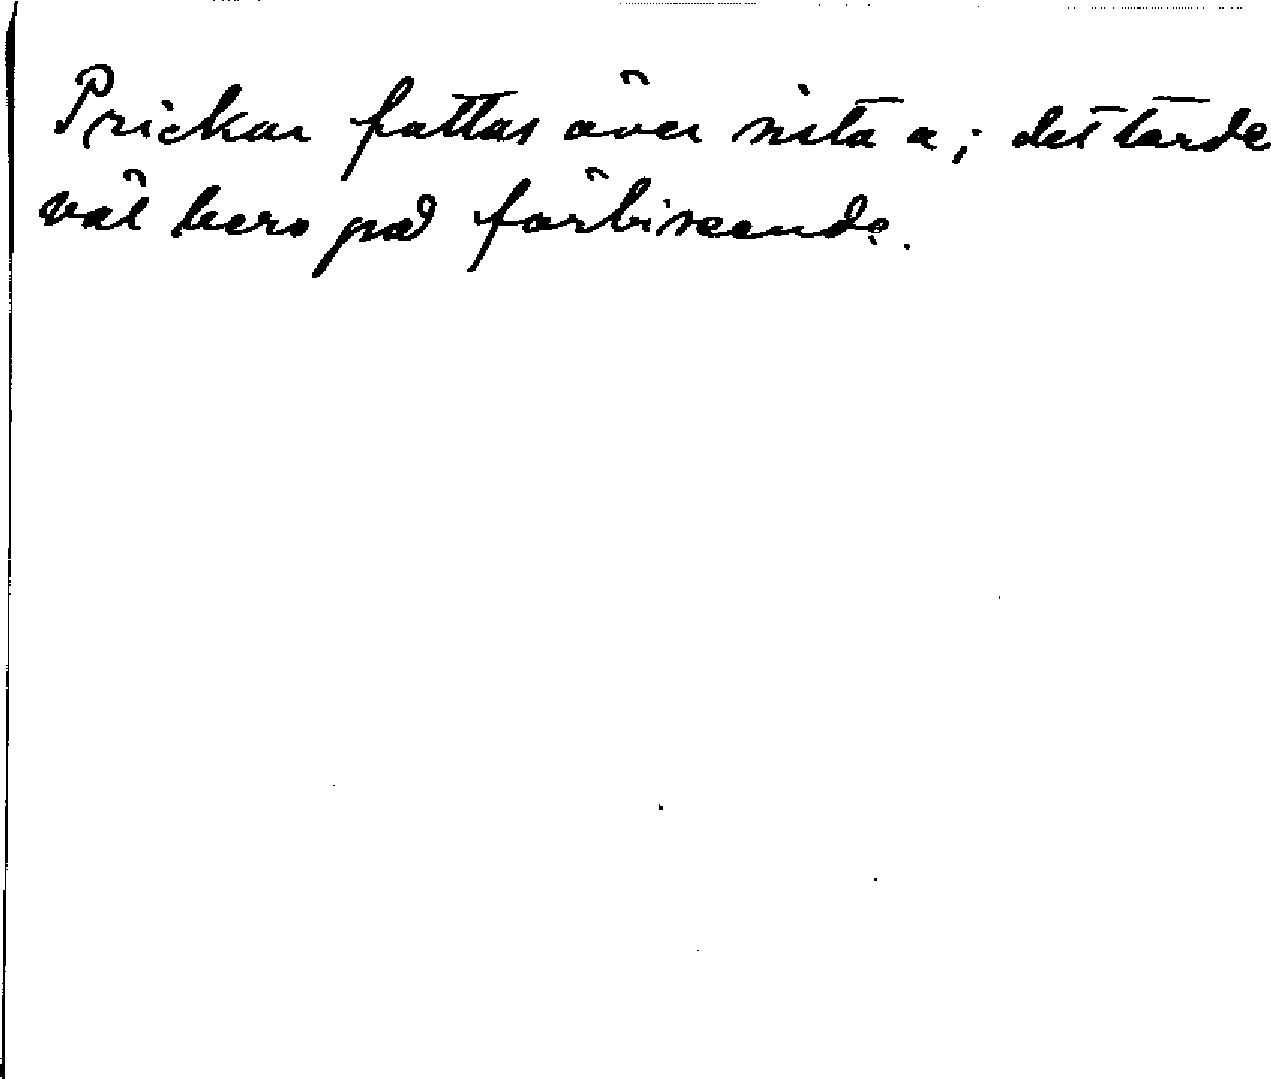 Prickar fattas över sista a; det torde
väl bero på förbiseende.